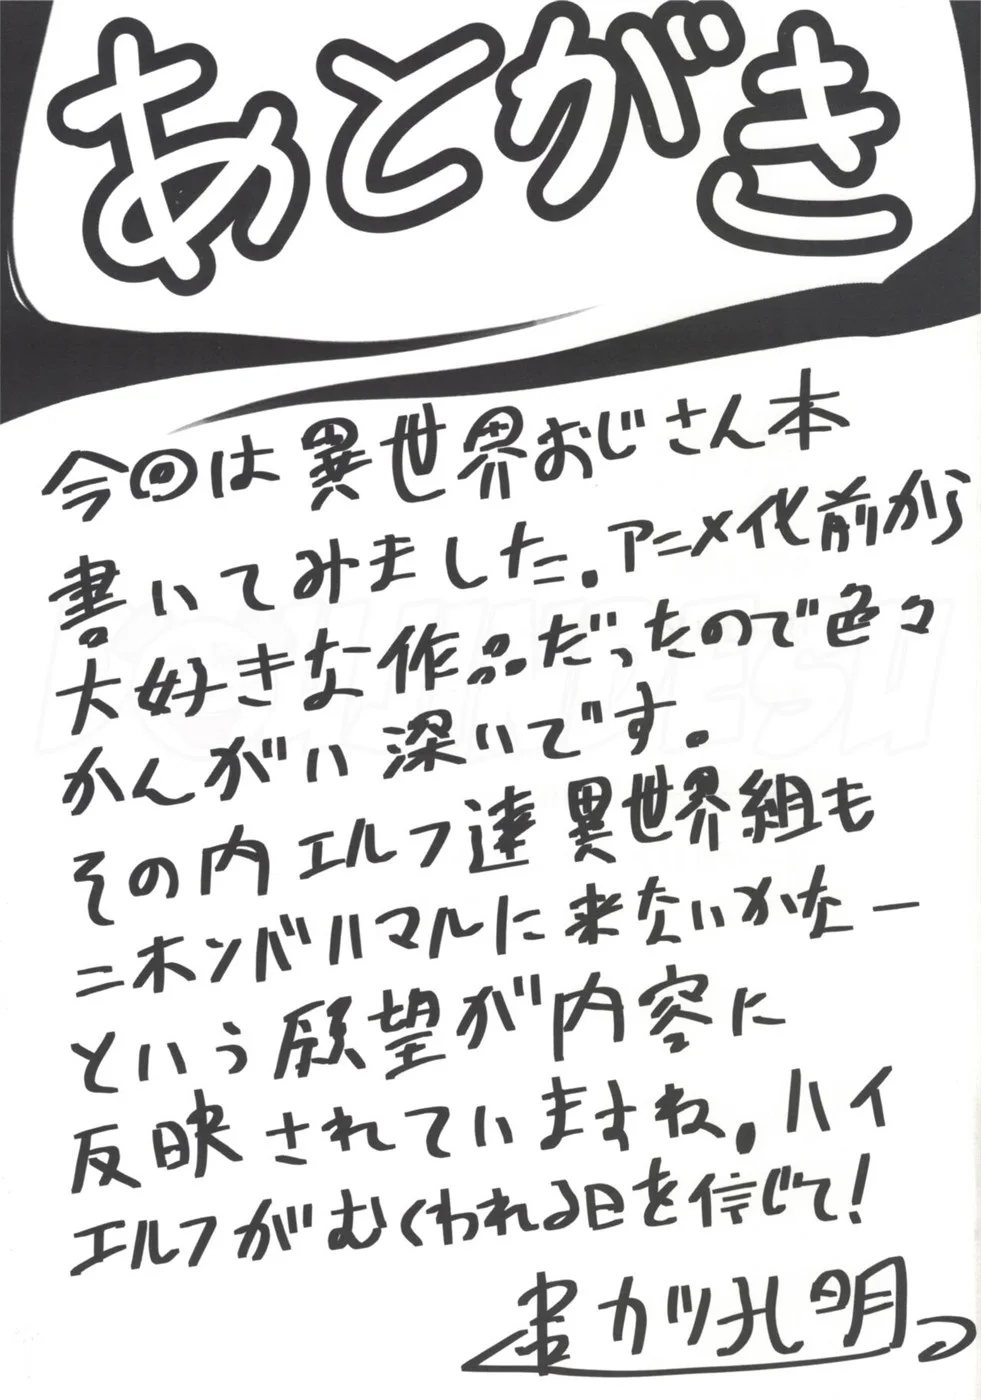 あとがき
今回は異世界おじさん本
書いてみました。アニメ化前から
大好きな作品だったので色々
かんがい深いです。
その内エルフ達異世界組も
ニホンバハマルに来ないかなー
という願望が内容に
反映されていますね。ハイ
エルフがむくわれる日を信じて!
カツ孔明